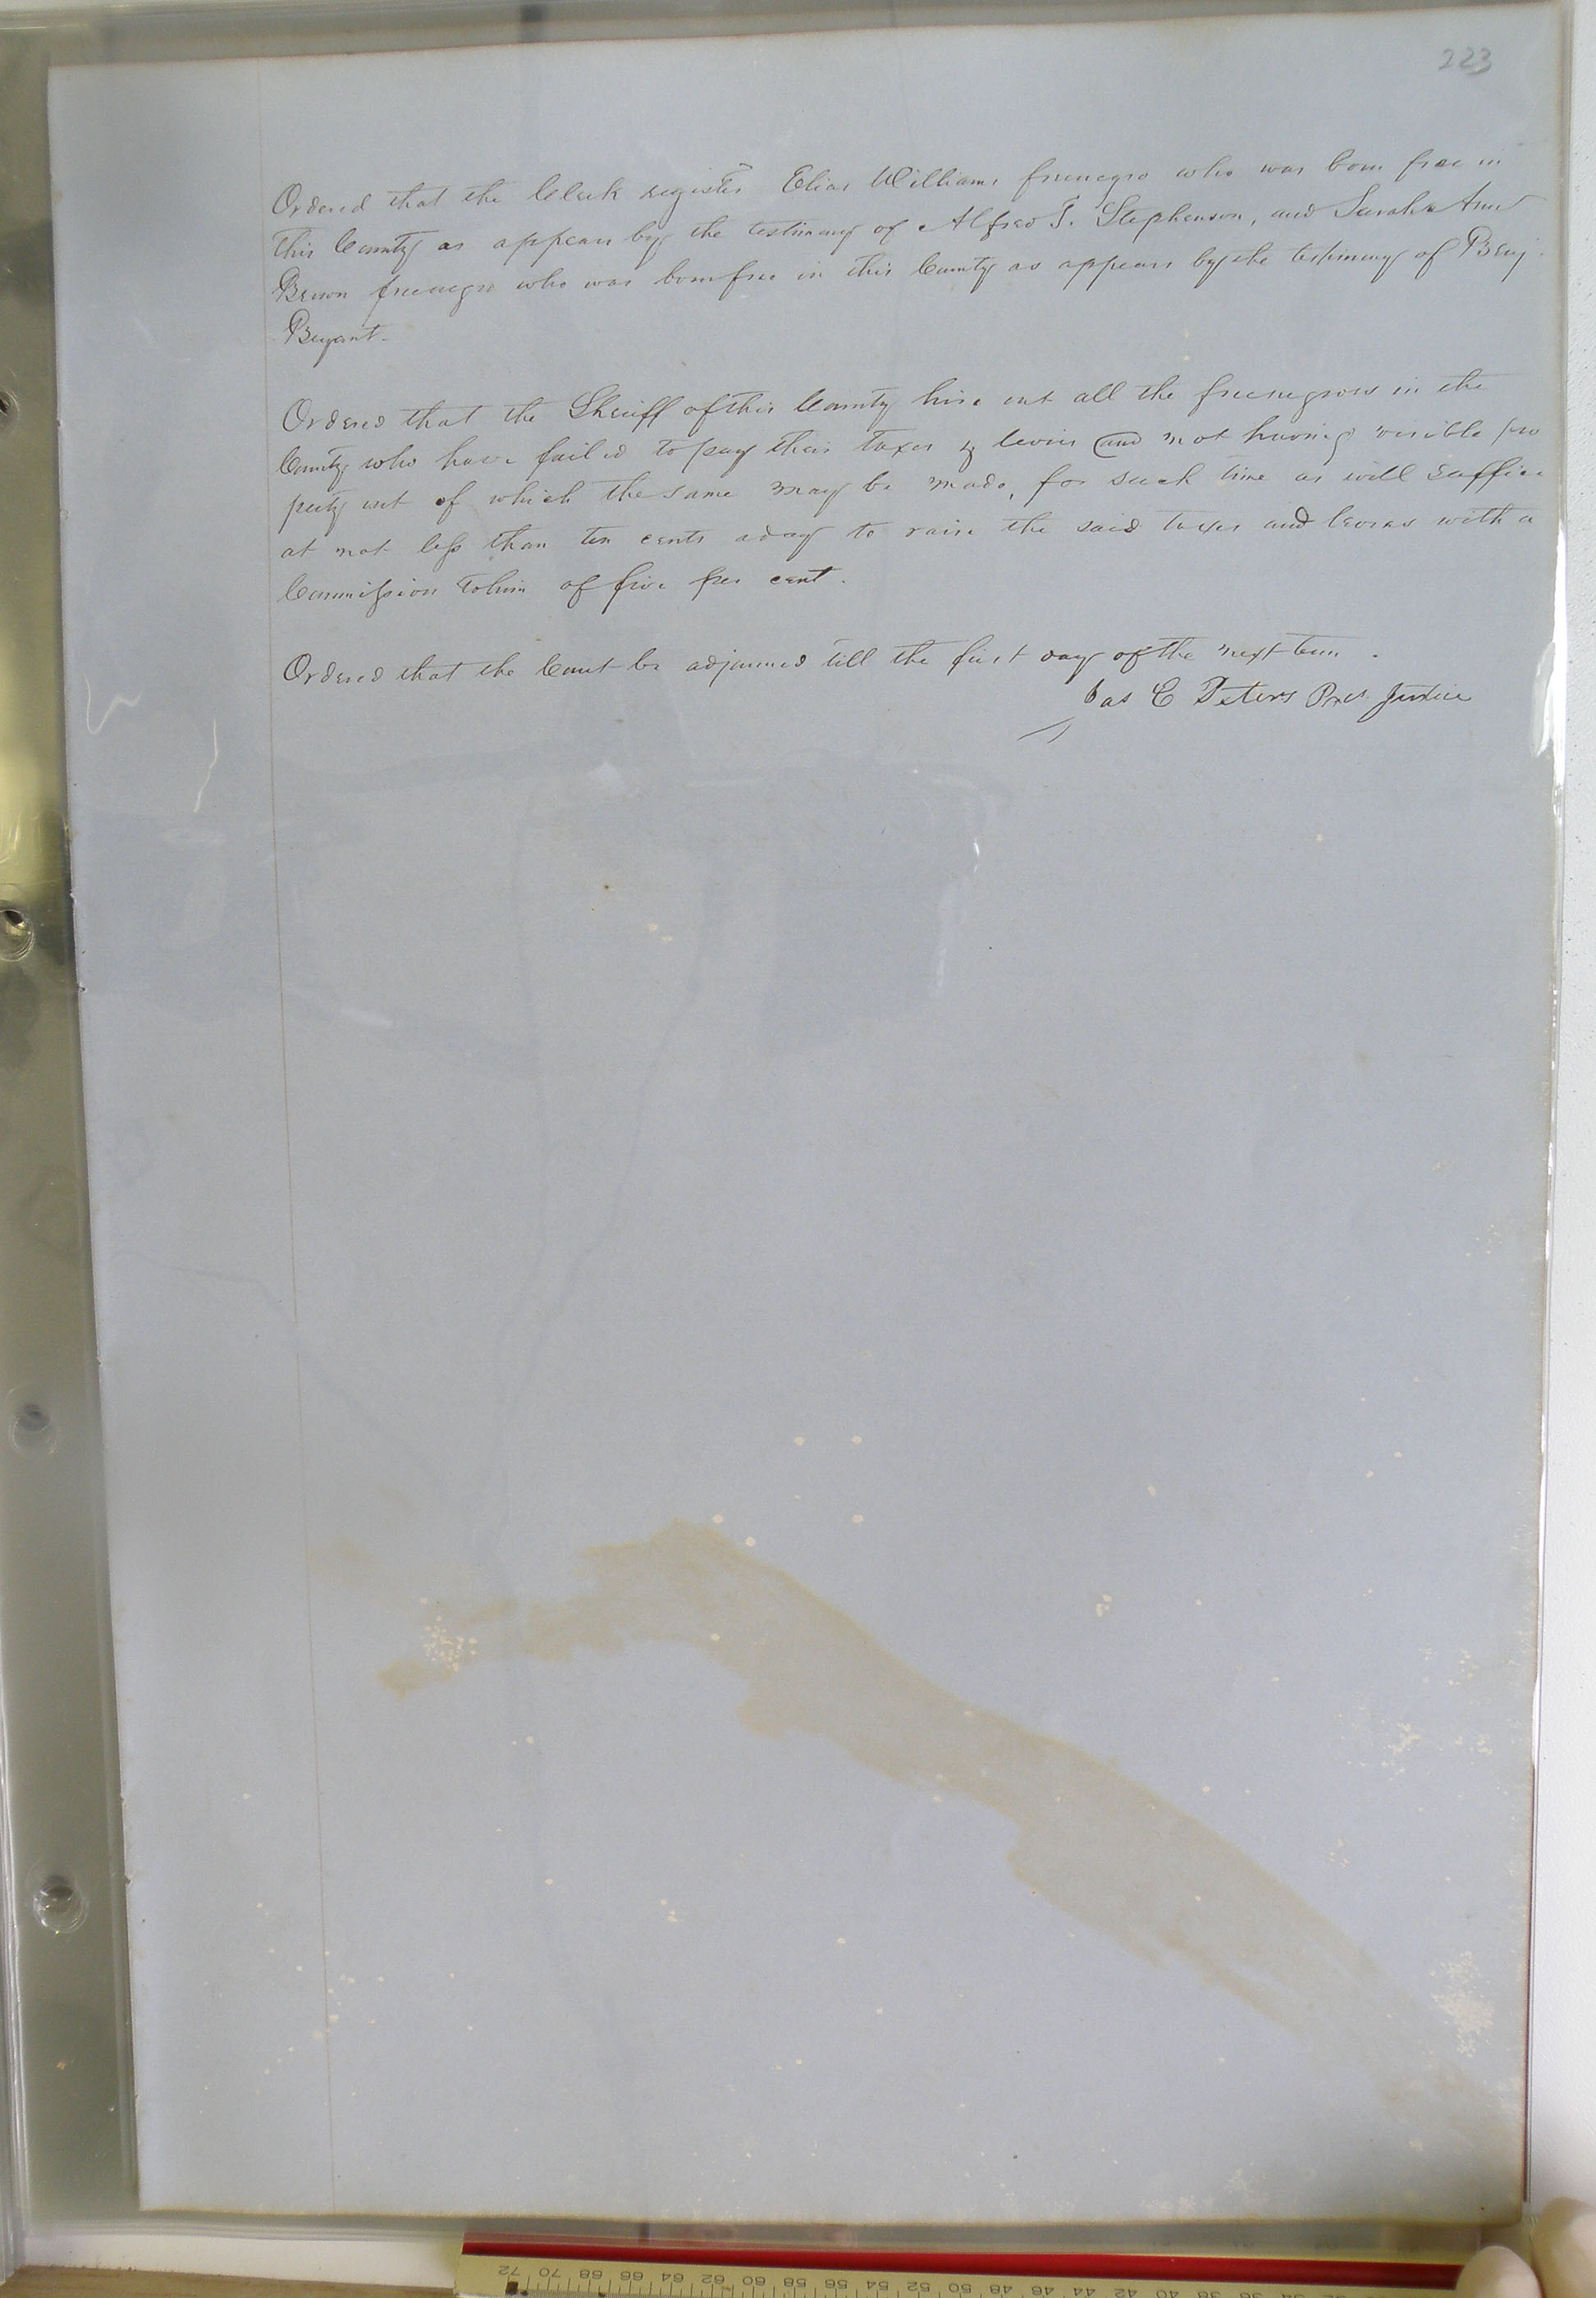 223
Ordered that the Clerk register Elias Williams freenegro who was born free in
this County as appears by the testimony of Alfred T. Stephenson, and Sarah Ann
Brison freenegro who was born free in this County as appears by the testimony of Benj.
Bryant.
Ordered that the Sheriff of this County hire out all the freenegroes in the
County who have failed to pay their taxes & levies and not having visible pro
perty out of which the same may be made, for such time as will suffice
at not less than ten cents a day to raise the said taxes and levies with a
Commission to him of five per cent.
Ordered that the Court be adjourned till the first day of the next term.
Jas C Peters Pres. Justice
72 70 68 66 64 62 60 58 56 54 52 50 48 46 44 42 40 38 36 34